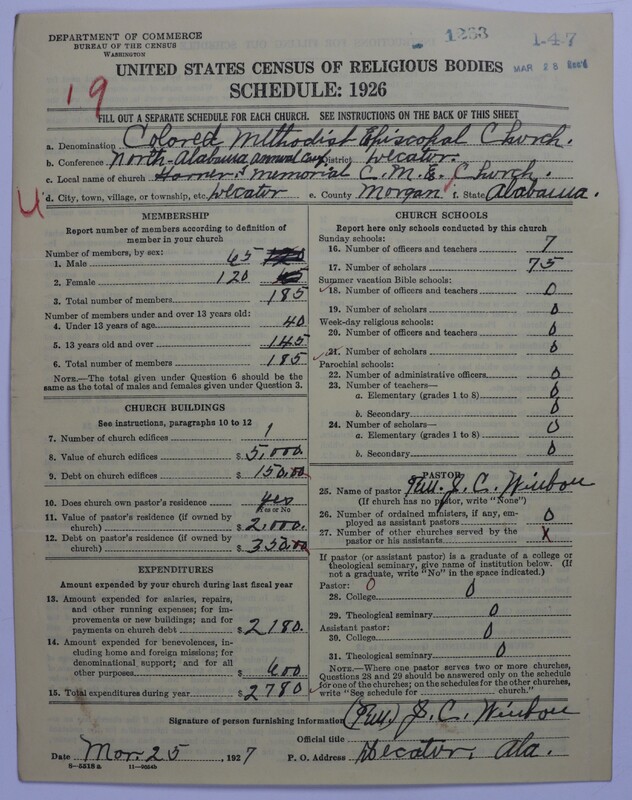 DEPARTMENT OF COMMERCE
BUREAU OF THE CENSUS
WASHINGTON
1233
147
MAR 28 Rec'd
UNITED STATES CENSUS OF RELIGIOUS BODIES
SCHEDULE: 1926
19
FILL OUT A SEPARATE SCHEDULE FOR EACH CHURCH. SEE INSTRUCTIONS ON THE BACK OF THIS SHEET
a. Denomination Colored Methodist Episcopal Church.
b. Conference North-Alabama Annual Conf. District Decatur.
c. Local name of church Memorial C. M. E. Church.
U d. City, town, village, or township, etc. Decatur e. County Morgan f. State Alabama.
MEMBERSHIP
Report number of members according to definition of
member in your church
Number of members, by sex:
1. Male 65
2. Female 120
3. Total number of members 185
Number of members under and over 13 years old:
4. Under 13 years of age 40
5. 13 years old and over 145
6. Total number of members 185
NOTE.—The total given under Question 6 should be the
same as the total of males and females given under Question 3.
CHURCH BUILDINGS
See instructions, paragraphs 10 to 12
7. Number of church edifices 1
8. Value of church edifices $ 5,000
9. Debt on church edifices $ 150.00
10. Does church own pastor's residence yes
Yes or No
11. Value of pastor's residence (if owned by
church) $ 2,000.
12. Debt on pastor's residence (if owned by
church) $ 350.00
EXPENDITURES
Amount expended by your church during last fiscal year
13. Amount expended for salaries, repairs,
and other running expenses; for im-
provements or new buildings; and for
payments on church debt $ 2180
14. Amount expended for benevolences, in-
cluding home and foreign missions; for
denominational support; and for all
other purposes $ 600
15. Total expenditures during year $ 2780
CHURCH SCHOOLS
Report here only schools conducted by this church
Sunday schools:
16. Number of officers and teachers 7
17. Number of scholars 75
Summer vacation Bible schools:
18. Number of officers and teachers 0
19. Number of scholars 0
Week-day religious schools:
20. Number of officers and teachers 0
21. Number of scholars 0
Parochial schools:
22. Number of administrative officers 0
23. Number of teachers—
a. Elementary (grades 1 to 8) 0
b. Secondary 0
24. Number of scholars—
a. Elementary (grades 1 to 8) 0
b. Secondary 0
PASTOR
25. Name of pastor Rev. J. C.
(If church has no pastor, write "None")
26. Number of ordained ministers, if any, em-
ployed as assistant pastors 0
27. Number of other churches served by the
pastor or his assistants X
If pastor (or assistant pastor) is a graduate of a college or
theological seminary, give name of institution below. (If
not a graduate, write "No" in the space indicated.)
Pastor: 0
28. College 0
29. Theological seminary 0
Assistant pastor:
30. College 0
31. Theological seminary 0
NOTE.—Where one pastor serves two or more churches,
Questions 28 and 29 should be answered only on the schedule
for one of the churches; on the schedules for the other churches,
write "See schedule for church."
Signature of person furnishing information (Rev.) J. C.
Official title
Date Mar. 25, 1927
P. O. Address Decatur, Ala.
8—5518 a